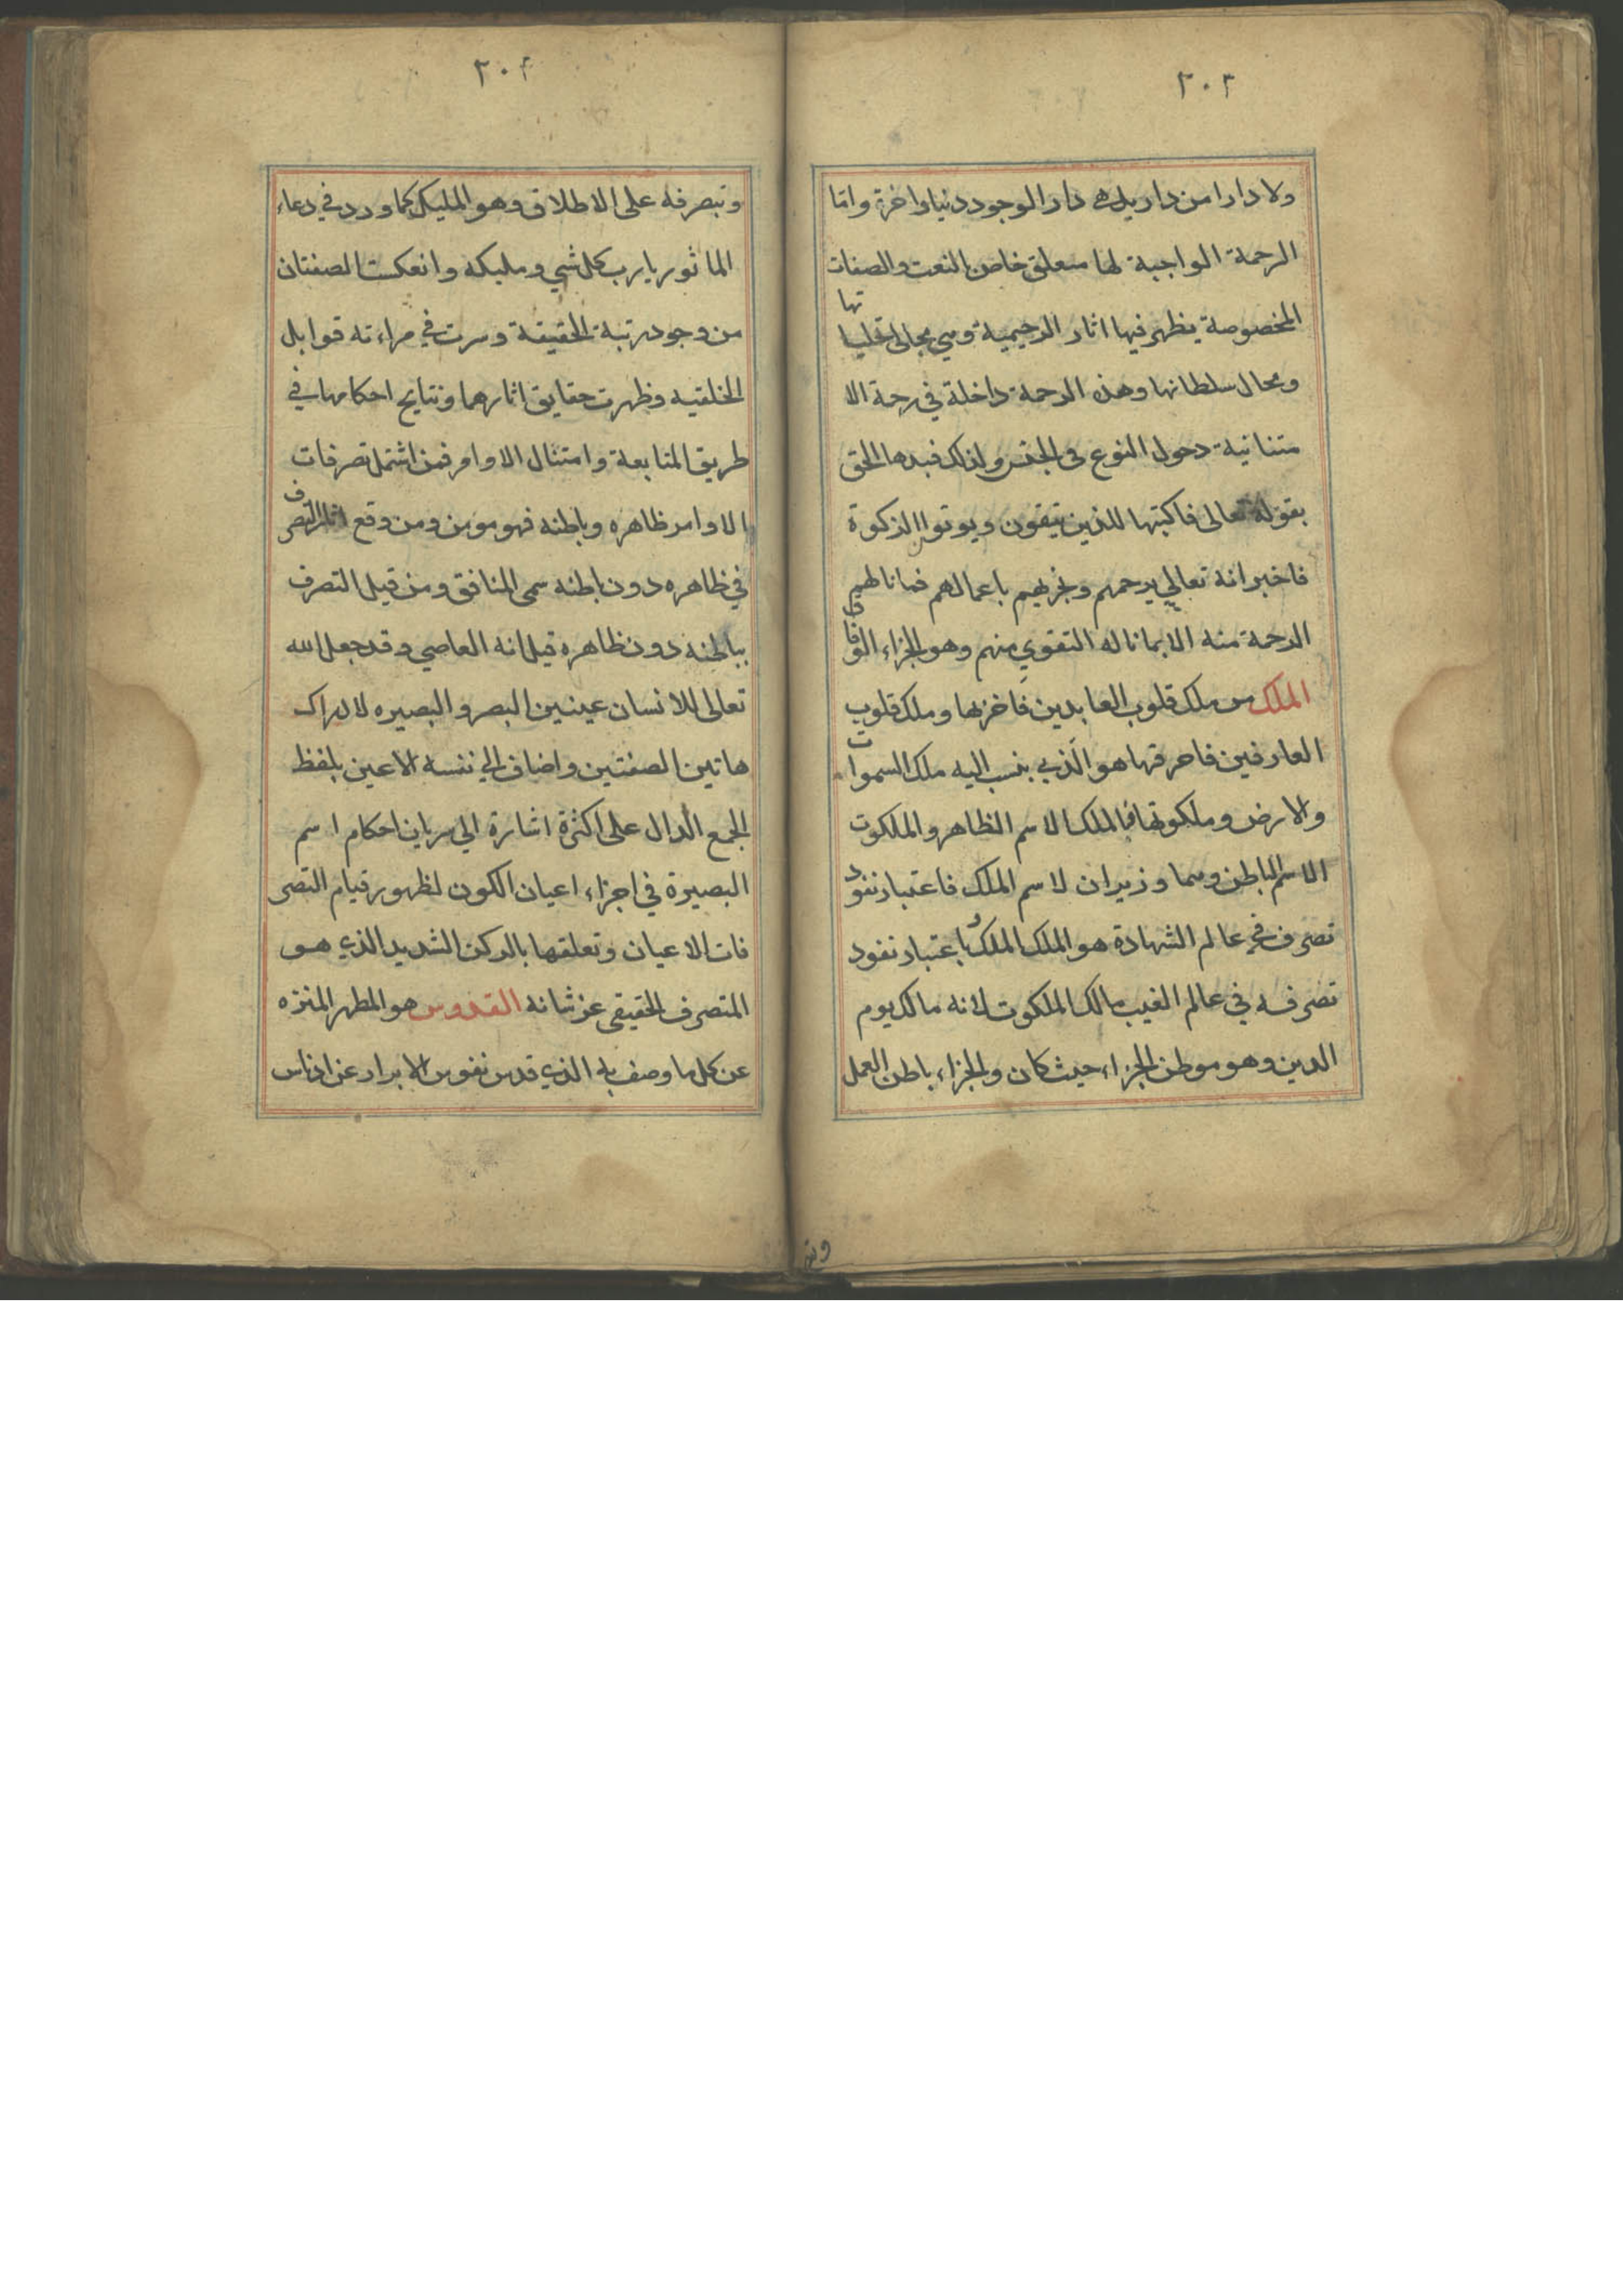 ٢٠٣
ولا دارا من دار بل هي دار الوجود دنيا واخرة واما
الرحمة الواجبة لها متعلق خاص بالنعت والصفات
المخصوصة يظهر فيها اثار الرحيمية وهي مجالي تجلياتها
ومحال سلطانها وهذه الرحمة داخلة في رحمة الا
متنانية دخول النوع في الجنس ولذلك قيدها الحق
بقوله تعالى فاكتبها للذين يتقون ويوتون الزكوة
فاخبر انه تعالي يرحمهم ويجزيهم باعمالهم فما نالهم
الرحمة منه الا بما ناله التقوي منهم وهو الجزاء الوفاق
الملك من ملك قلوب العابدين فاخزنها وملك قلوب
العارفين فاحرقها هو الذي ينسب اليه ملك السموات
والارض وملكوتها فالملك الاسم الظاهر والملكوت
الاسم الباطن وهما وزيران لاسم الملك فاعتبار نفود
تصرف في عالم الشهادة هو الملك الملك وباعتبار نفود
تصرفه في عالم الغيب مالك الملكوت لانه مالك يوم
الدين وهو موطن الجزاء حيث كان والجزاء باطن العمل
٢٠٤
وتبصرفه على الاطلاق وهو المليك كما ورد في دعاء
الماثور يا رب كل شي ومليكه وانعكست الصفتان
من وجود رتبة الحقيقة وسرت في مراءته قوابل
الخلقيه وظهرت حقايق اثارهما ونتايج احكامها في
طريق المتابعة وامتثال الاوامر فمن اشتمل تصرفات
الاوامر ظاهره وباطنه فهو مومن ومن وقع اثار التصرف
في ظاهره دون باطنه سمي المنافق ومن قبل التصرف
بباطنه دون ظاهره قيل انه العاصي وقد جعل الله
تعالى للانسان عينين البصر والبصيره لادراك
هاتين الصفتين واضاف الي نفسه الاعين بلفظ
الجمع الدال على اكثرة اشارة الي سريان احكام اسم
البصيرة في اجزاء اعيان الكون لظهور قيام التصر
فات الاعيان وتعلقها بالركن الشديد الذي هو
المتصرف الحقيقي عز شانه القدوس هو المطهر المنزه
عن كل ما وصف به الذي قدس نفوس الابرار عن ادناس